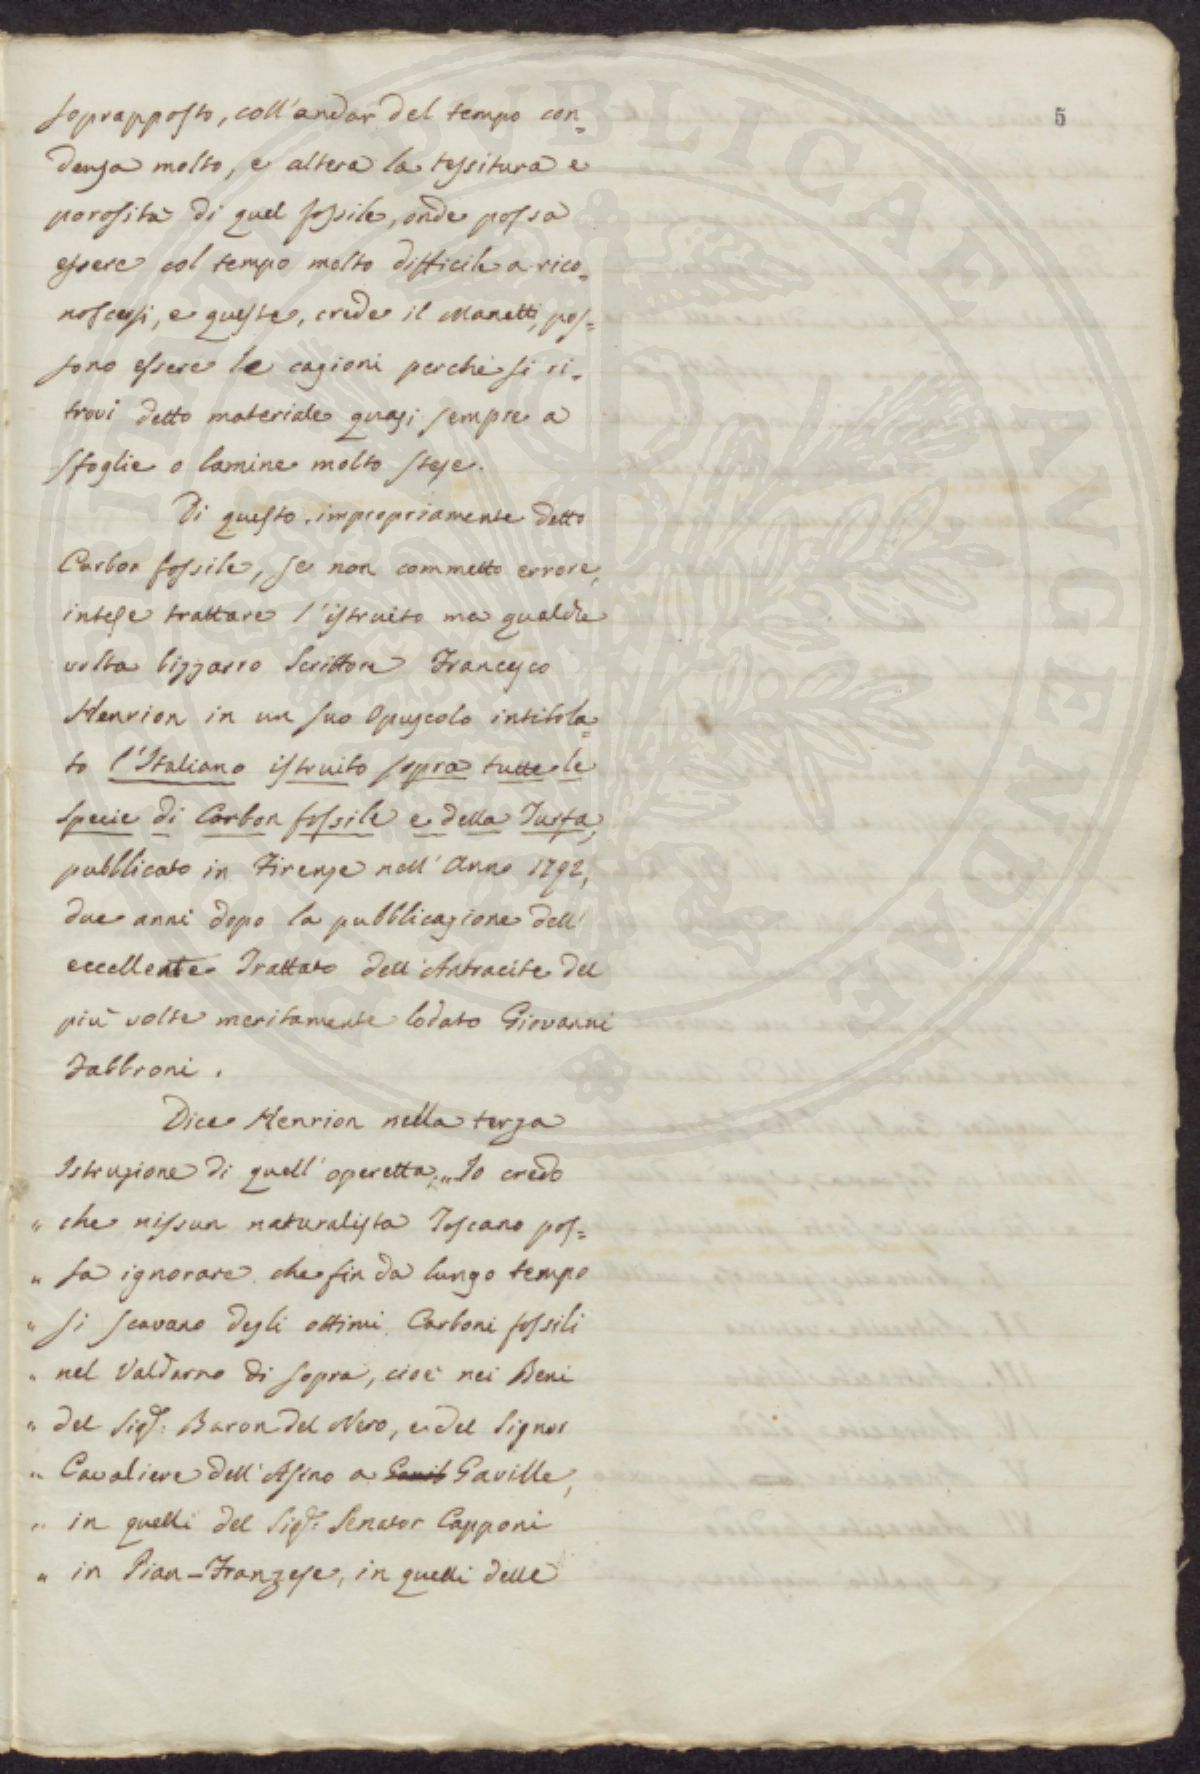 5
soprapposto, coll'andar del tempo con=
densa molto, e altera la tessitura e
porosità di quel fossile, onde possa
essere col tempo molto difficile a rico=
noscersi, e queste, crede il Manetti, pos=
sono essere le cagioni perchè si ri=
trovi detto materiale quasi sempre a
sfoglie o lamine molto stese.
Di questo impropriamente detto
Carbon fossile, se non commetto errore,
intese trattare l'istruito ma qualche
volta bizzarro Scrittore Francesco
Henrion in un suo Opuscolo intitola=
to l'Italiano istruito sopra tutte le
specie di Carbon fossile e della Turfa,
pubblicato in Firenze nell'Anno 1792,
due anni dopo la pubblicazione dell'
eccellente Trattato dell'Antracite del
più volte meritamente lodato Giovanni
Fabbroni.
Dice Henrion nella terza
Istruzione di quell'operetta, „Io credo
„ che nissun naturalista Toscano pos=
„ sa ignorare che fin da lungo tempo
„ si scavano degli ottimi Carboni fossili
„ nel Valdarno di sopra, cioè nei Beni
„ del Sig.r Baron del Nero, e del Signor
„ Cavaliere dell'Asino a Gaville,
„ in quelli del Sig.r Senator Capponi
„ in Pian-Franzese, in quelli delle
PUBLICAE ANGENDAE